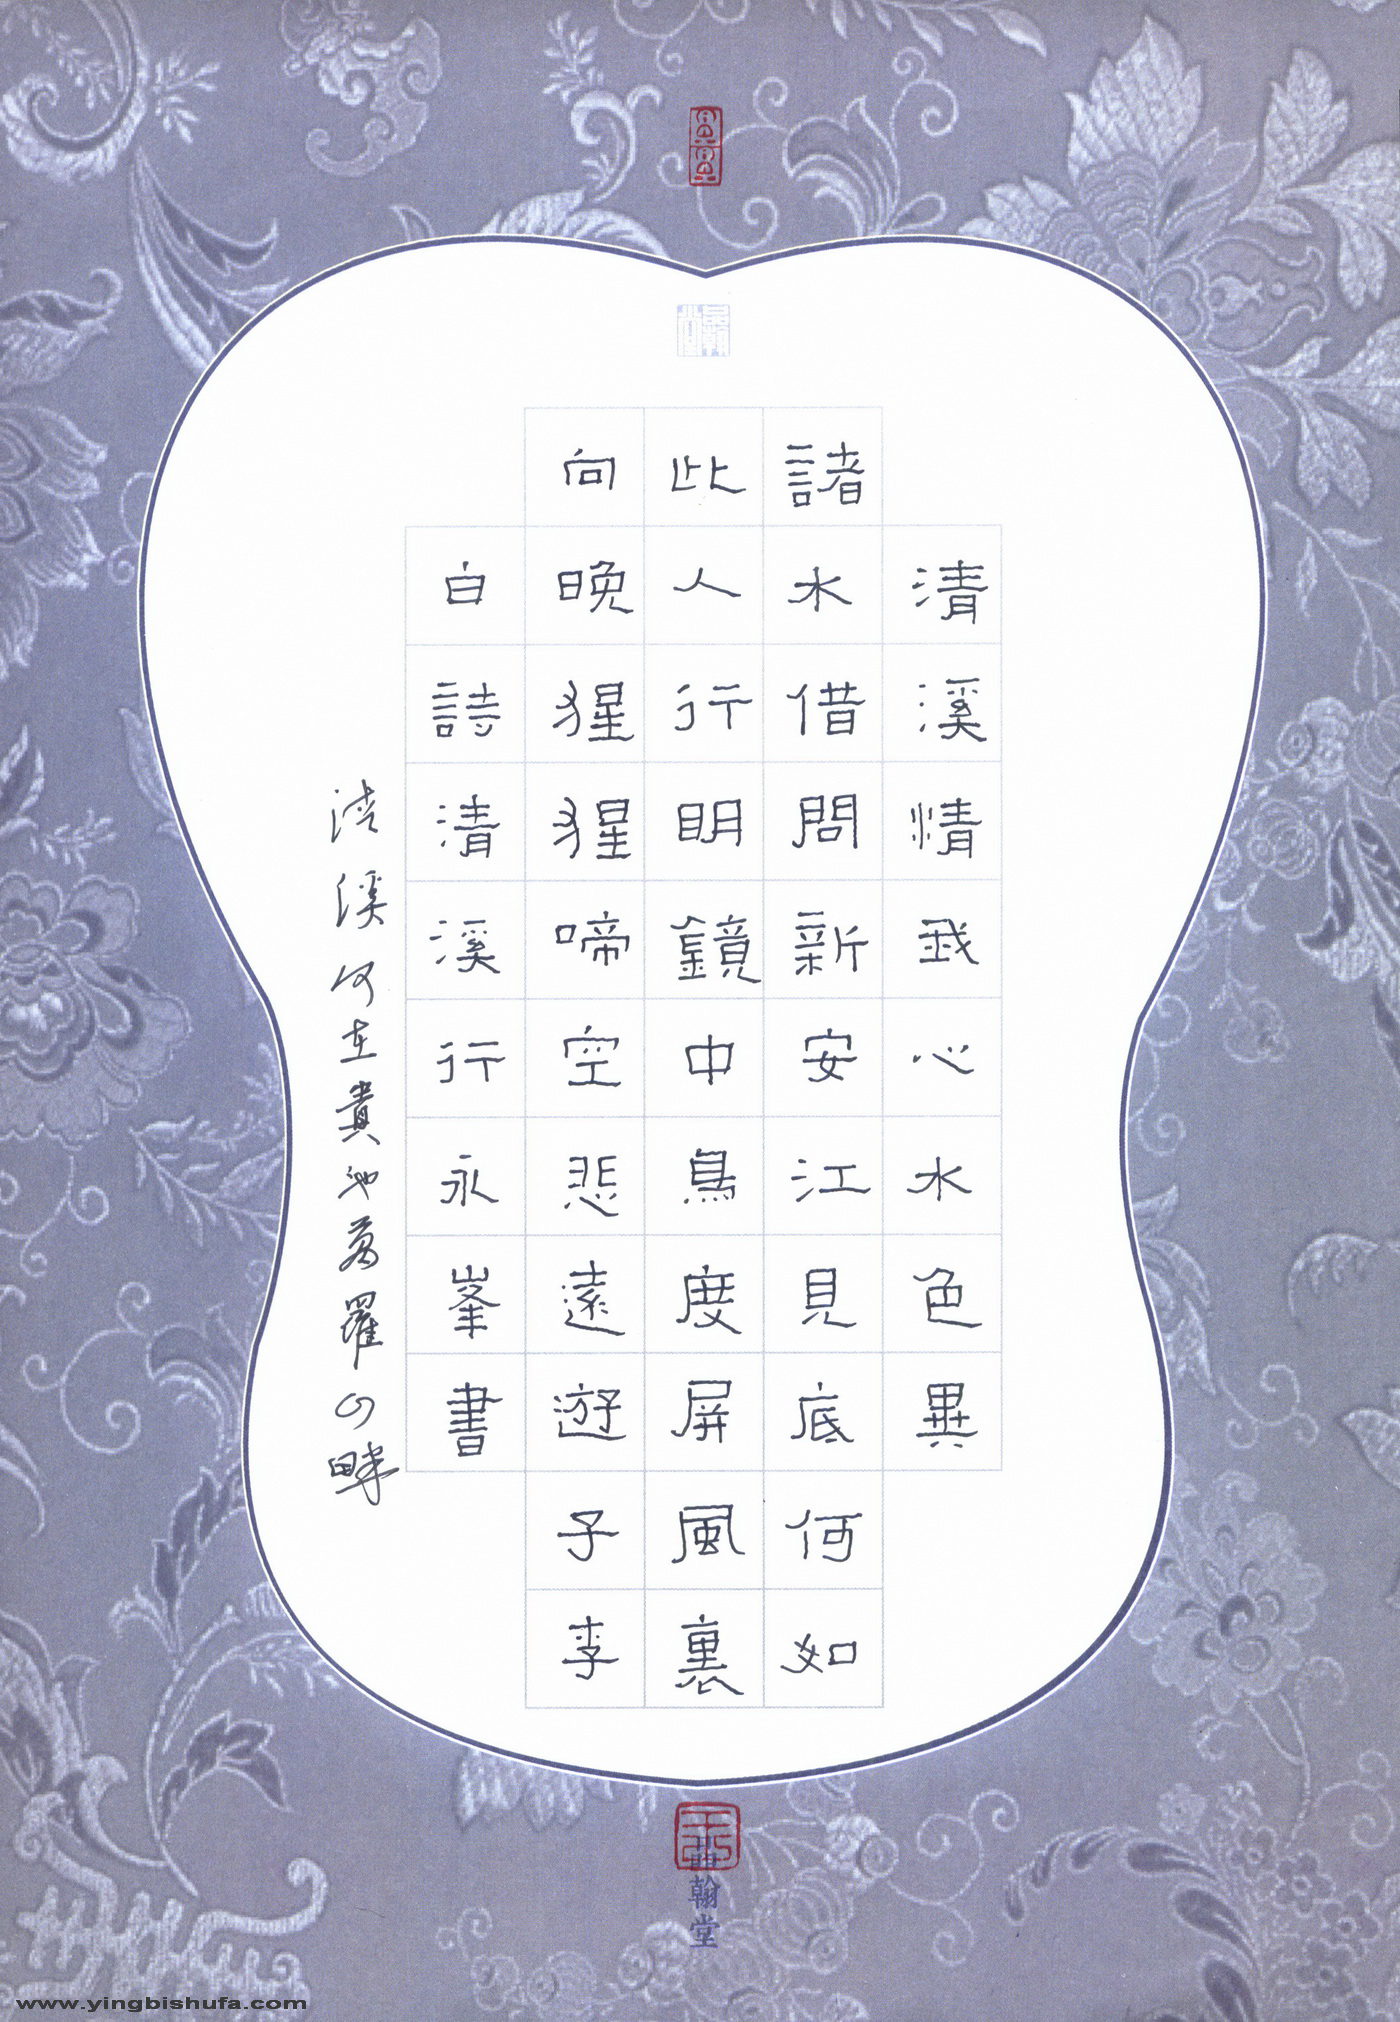 清溪情我心水色異
諸水借問新安江見底何如
此人行明鏡中鳥度屏風裏
向晚猩猩啼空悲遠遊子李
白詩清溪行永峯書
清溪河在貴池萬羅山畔
品翰堂
www.yingbishufa.com